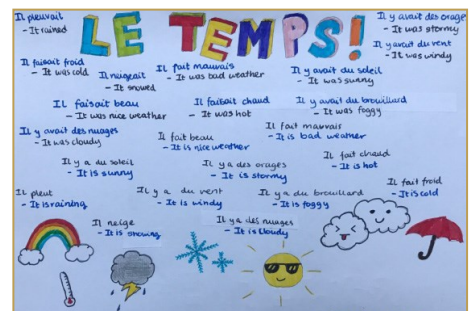 Il pleuvait
- It rained
LE TEMPS!
Il y avait des orage
- It was stormy
Il y avait du vent
- It was windy
Il faisait froid
- It was cold
Il neigeait
- It snowed
Il fait mauvais
- It was bad weather
Il y avait du soleil
- It was sunny
Il faisait beau
- It was nice weather
Il faisait chaud
- It was hot
Il y avait du brouillard
- It was foggy
Il y avait des nuages
- It was cloudy
Il fait beau
- It is nice weather
Il fait mauvais
- It is bad weather
Il y a du soleil
- It is sunny
Il y a des orages
- It is stormy
Il fait chaud
- It is hot
Il pleut
- It is raining
Il y a du vent
- It is windy
Il y a du brouillard
- It is foggy
Il fait froid
- It is cold
Il neige
- It is snowing
Il y a des nuages
- It is cloudy